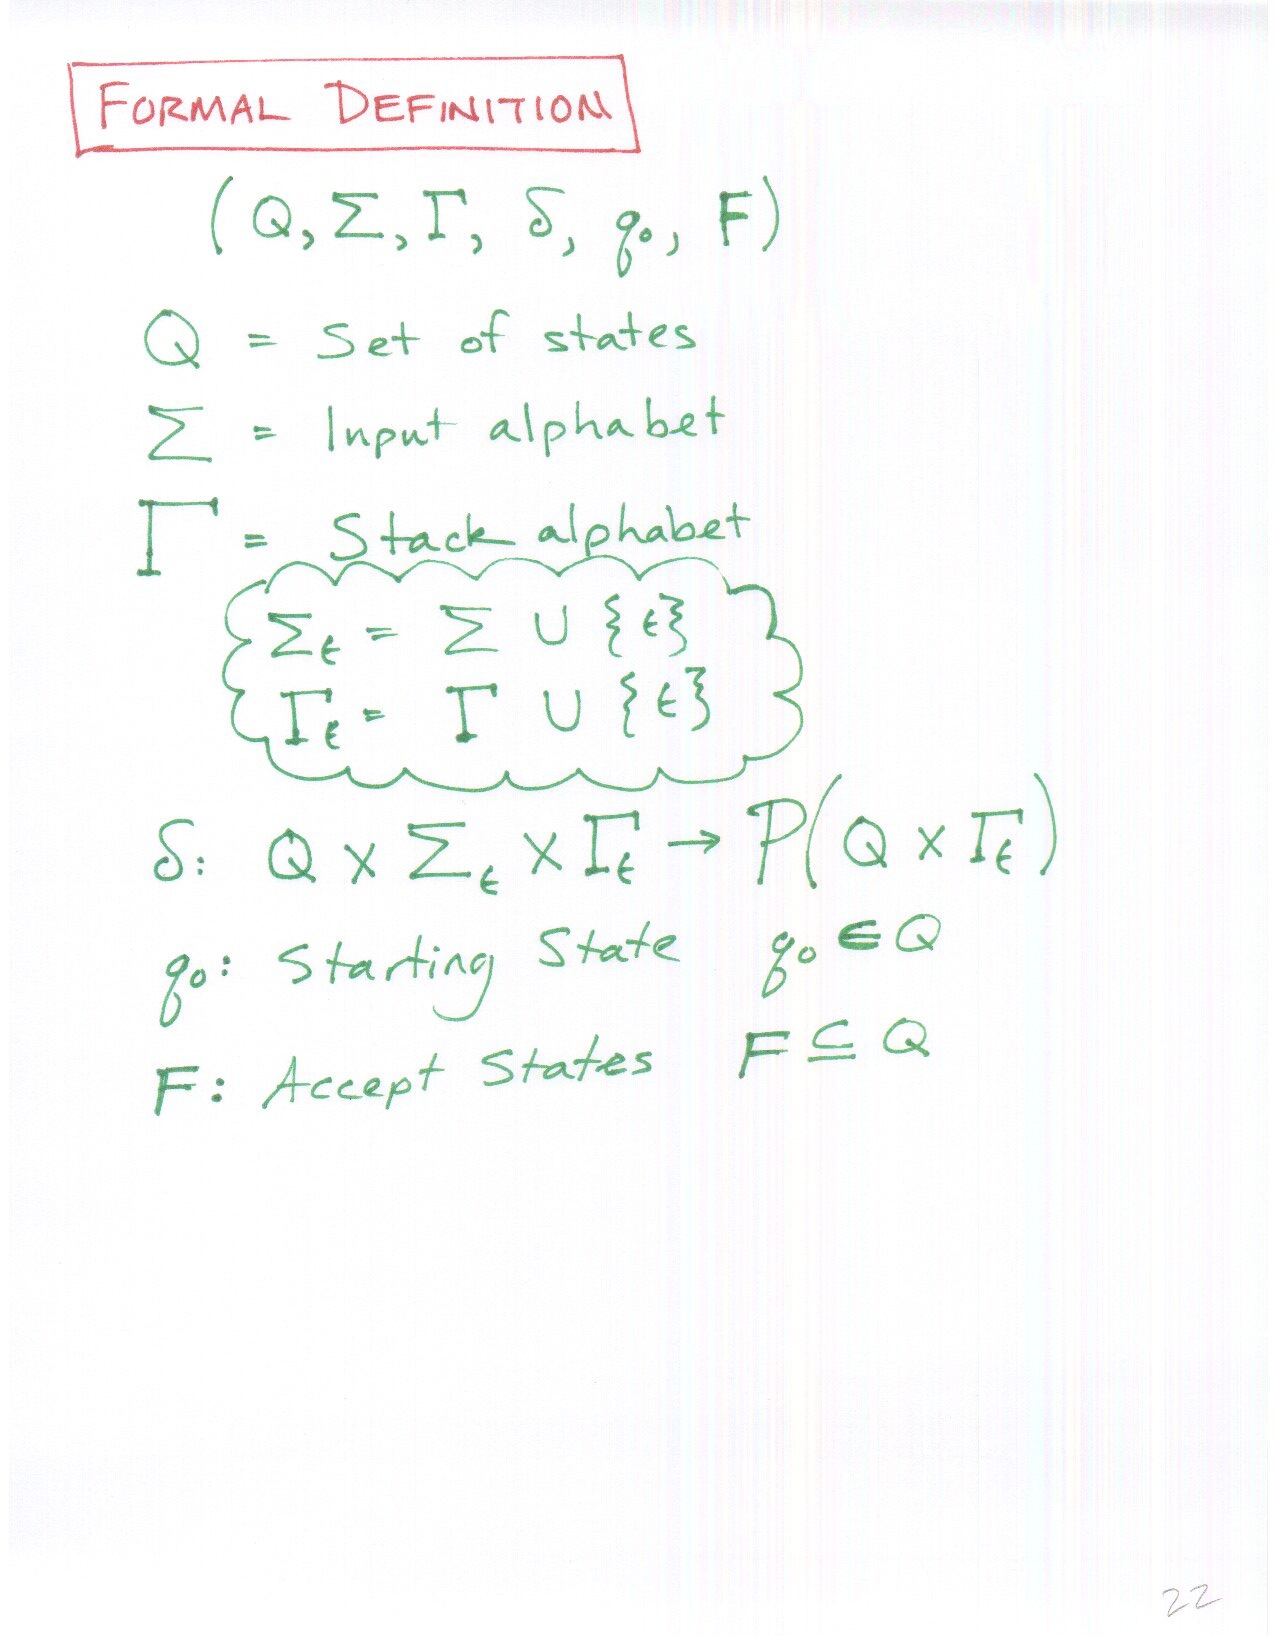 FORMAL DEFINITION
(Q, Σ, Γ, δ, q₀, F)
Q = Set of states
Σ = Input alphabet
Γ = Stack alphabet
Σ_ε = Σ ∪ {ε}
Γ_ε = Γ ∪ {ε}
δ: Q × Σ_ε × Γ_ε → P(Q × Γ_ε)
q₀: Starting State q₀ ∈ Q
F: Accept States F ⊆ Q
22